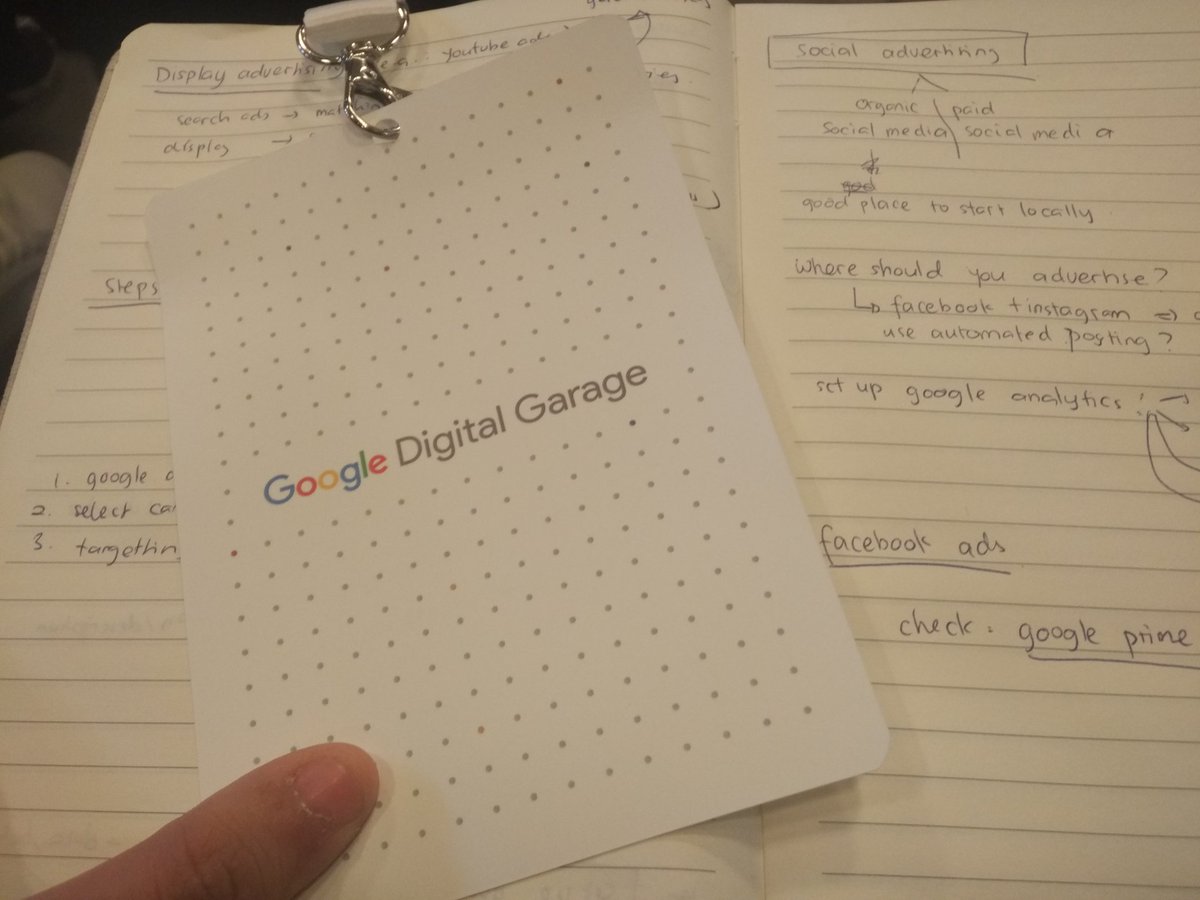 Display advertising
youtube ads
search ads →
display →
Steps
1. google
2. select
3.
Google Digital Garage
social advertising
organic | paid
social media | social media
good place to start locally
where should you advertise?
↳ facebook + instagram ⇒
use automated posting?
set up google analytics
facebook ads
check: google prime